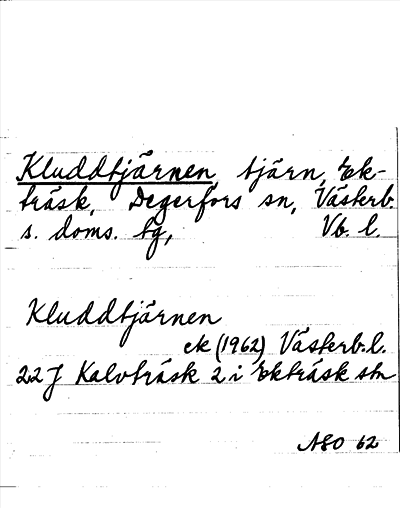 Kluddtjärnen, tjärn, Ek-
träsk, Degerfors sn, Västerb.
s. doms. tg, Vb. l.
Kluddtjärnen
ek (1962) Västerb.l.
22 J Kalvträsk 2 i Ekträsk stn
ASO 62